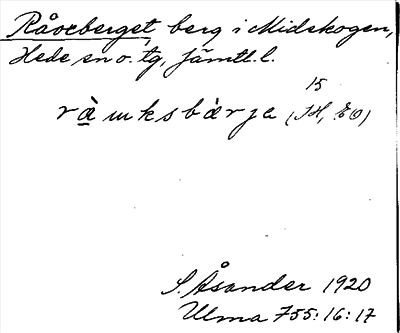 Råoxberget, berg i Midskogen,
Hede sn o. tg, Jämtl. l.
15
rà̱uksbàrje (JH, EO)
S. Åsander 1920
Ulma 755:16:17